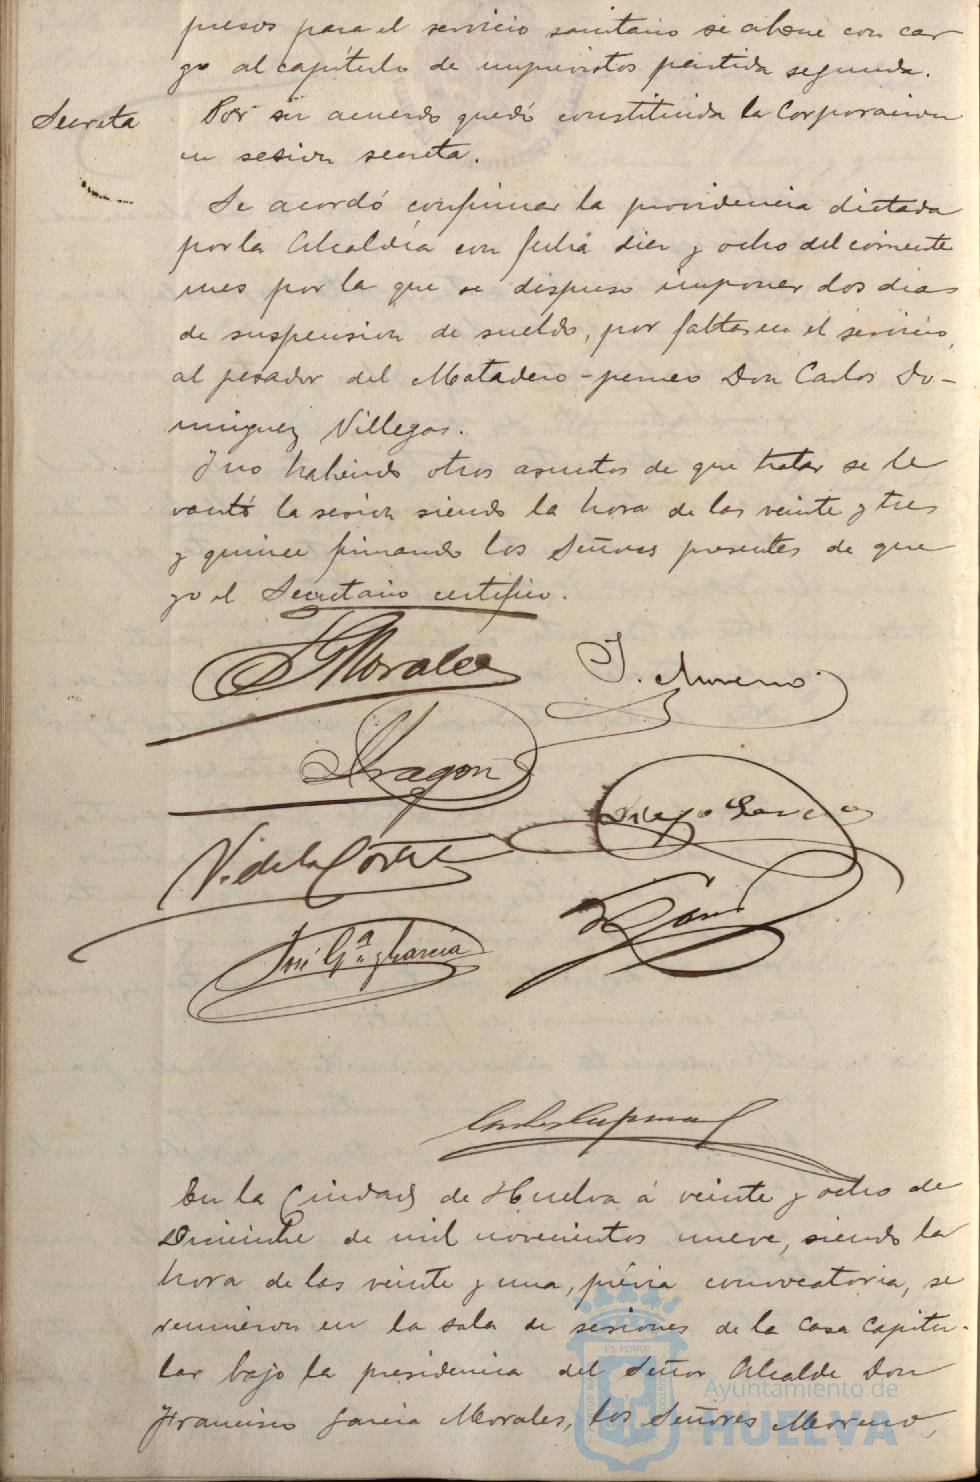 presos para el servicio sanitario se abone con car
go al capítulo de imprevistos partida segunda.
Secreta
Por su acuerdo quedó constituida la Corporacion
en sesion secreta.
Se acordó confirmar la providencia dictada
por la Alcaldía con fecha diez y ocho del corriente
mes por la que se dispuso imponer dos dias
de suspension de sueldo, por faltas en el servicio,
al pesador del Matadero-perneo Don Carlos Do-
minguez Villegas.
Y no habiendo otros asuntos de que tratar se le
vantó la sesion siendo la hora de las veinte y tres
y quince firmando los Señores presentes de que
yo el Secretario certifico.
F G Morales
J. Moreno
Aragon
Diego Garcia
V. de la Corte
José Gª y Garcia
En la Ciudad de Huelva á veinte y ocho de
Diciembre de mil novecientos nueve, siendo la
hora de las veinte y una, prévia convocatoria, se
reunieron en la sala de sesiones de la Casa Capitu-
lar bajo la presidencia del Señor Alcalde Don
Francisco Garcia Morales, los Señores Moreno,
Ayuntamiento de
HUELVA